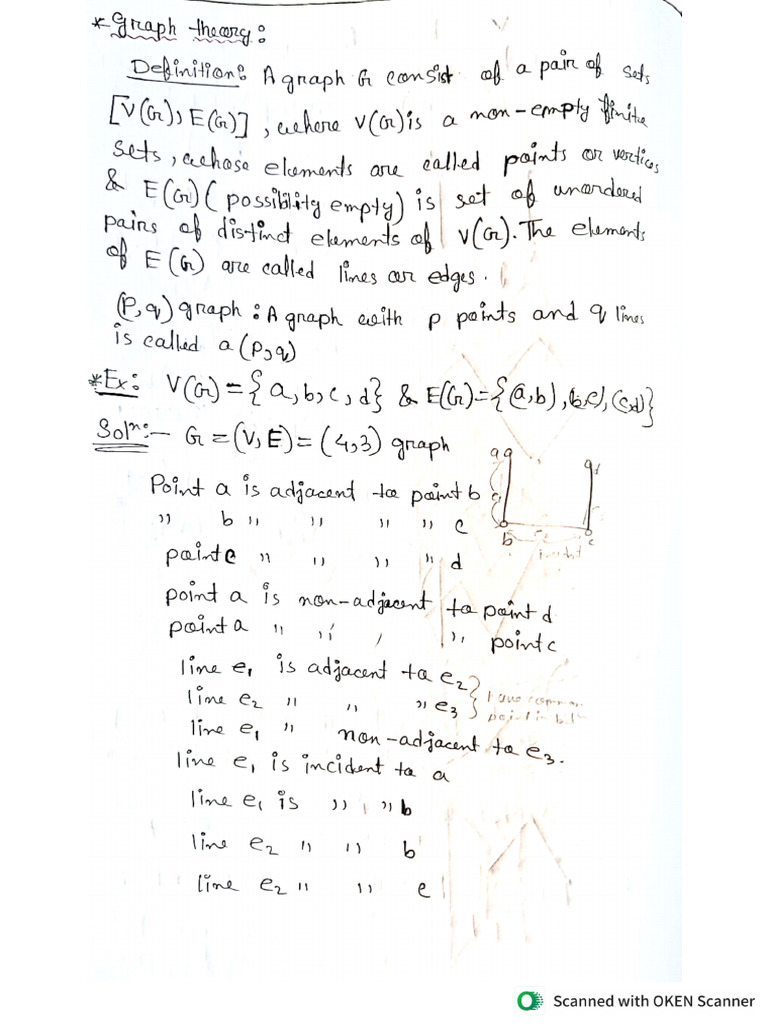 * Graph theory :
Definition : A graph G consist of a pair of sets
[V(G), E(G)] , where V(G) is a non-empty finite
sets, whose elements are called points or vertices
& E(G) (possibility empty) is set of unordered
pairs of distinct elements of V(G). The elements
of E(G) are called lines or edges.
(P,q) graph : A graph with p points and q lines
is called a (P,q)
* Ex: V(G) = {a, b, c, d} & E(G) = {(a,b), (b,c), (c,d)}
Solⁿ:- G = (V, E) = (4,3) graph
a
d
b
c
Point a is adjacent to point b
" b " " " " c
point c " " " " d
point a is non-adjacent to point d
point a " " , " point c
line e₁ is adjacent to e₂
line e₂ " " " e₃
point in b/w
line e₁ " non-adjacent to e₃.
line e₁ is incident to a
line e₁ is " " b
line e₂ " " b
line e₂ " " c
Scanned with OKEN Scanner